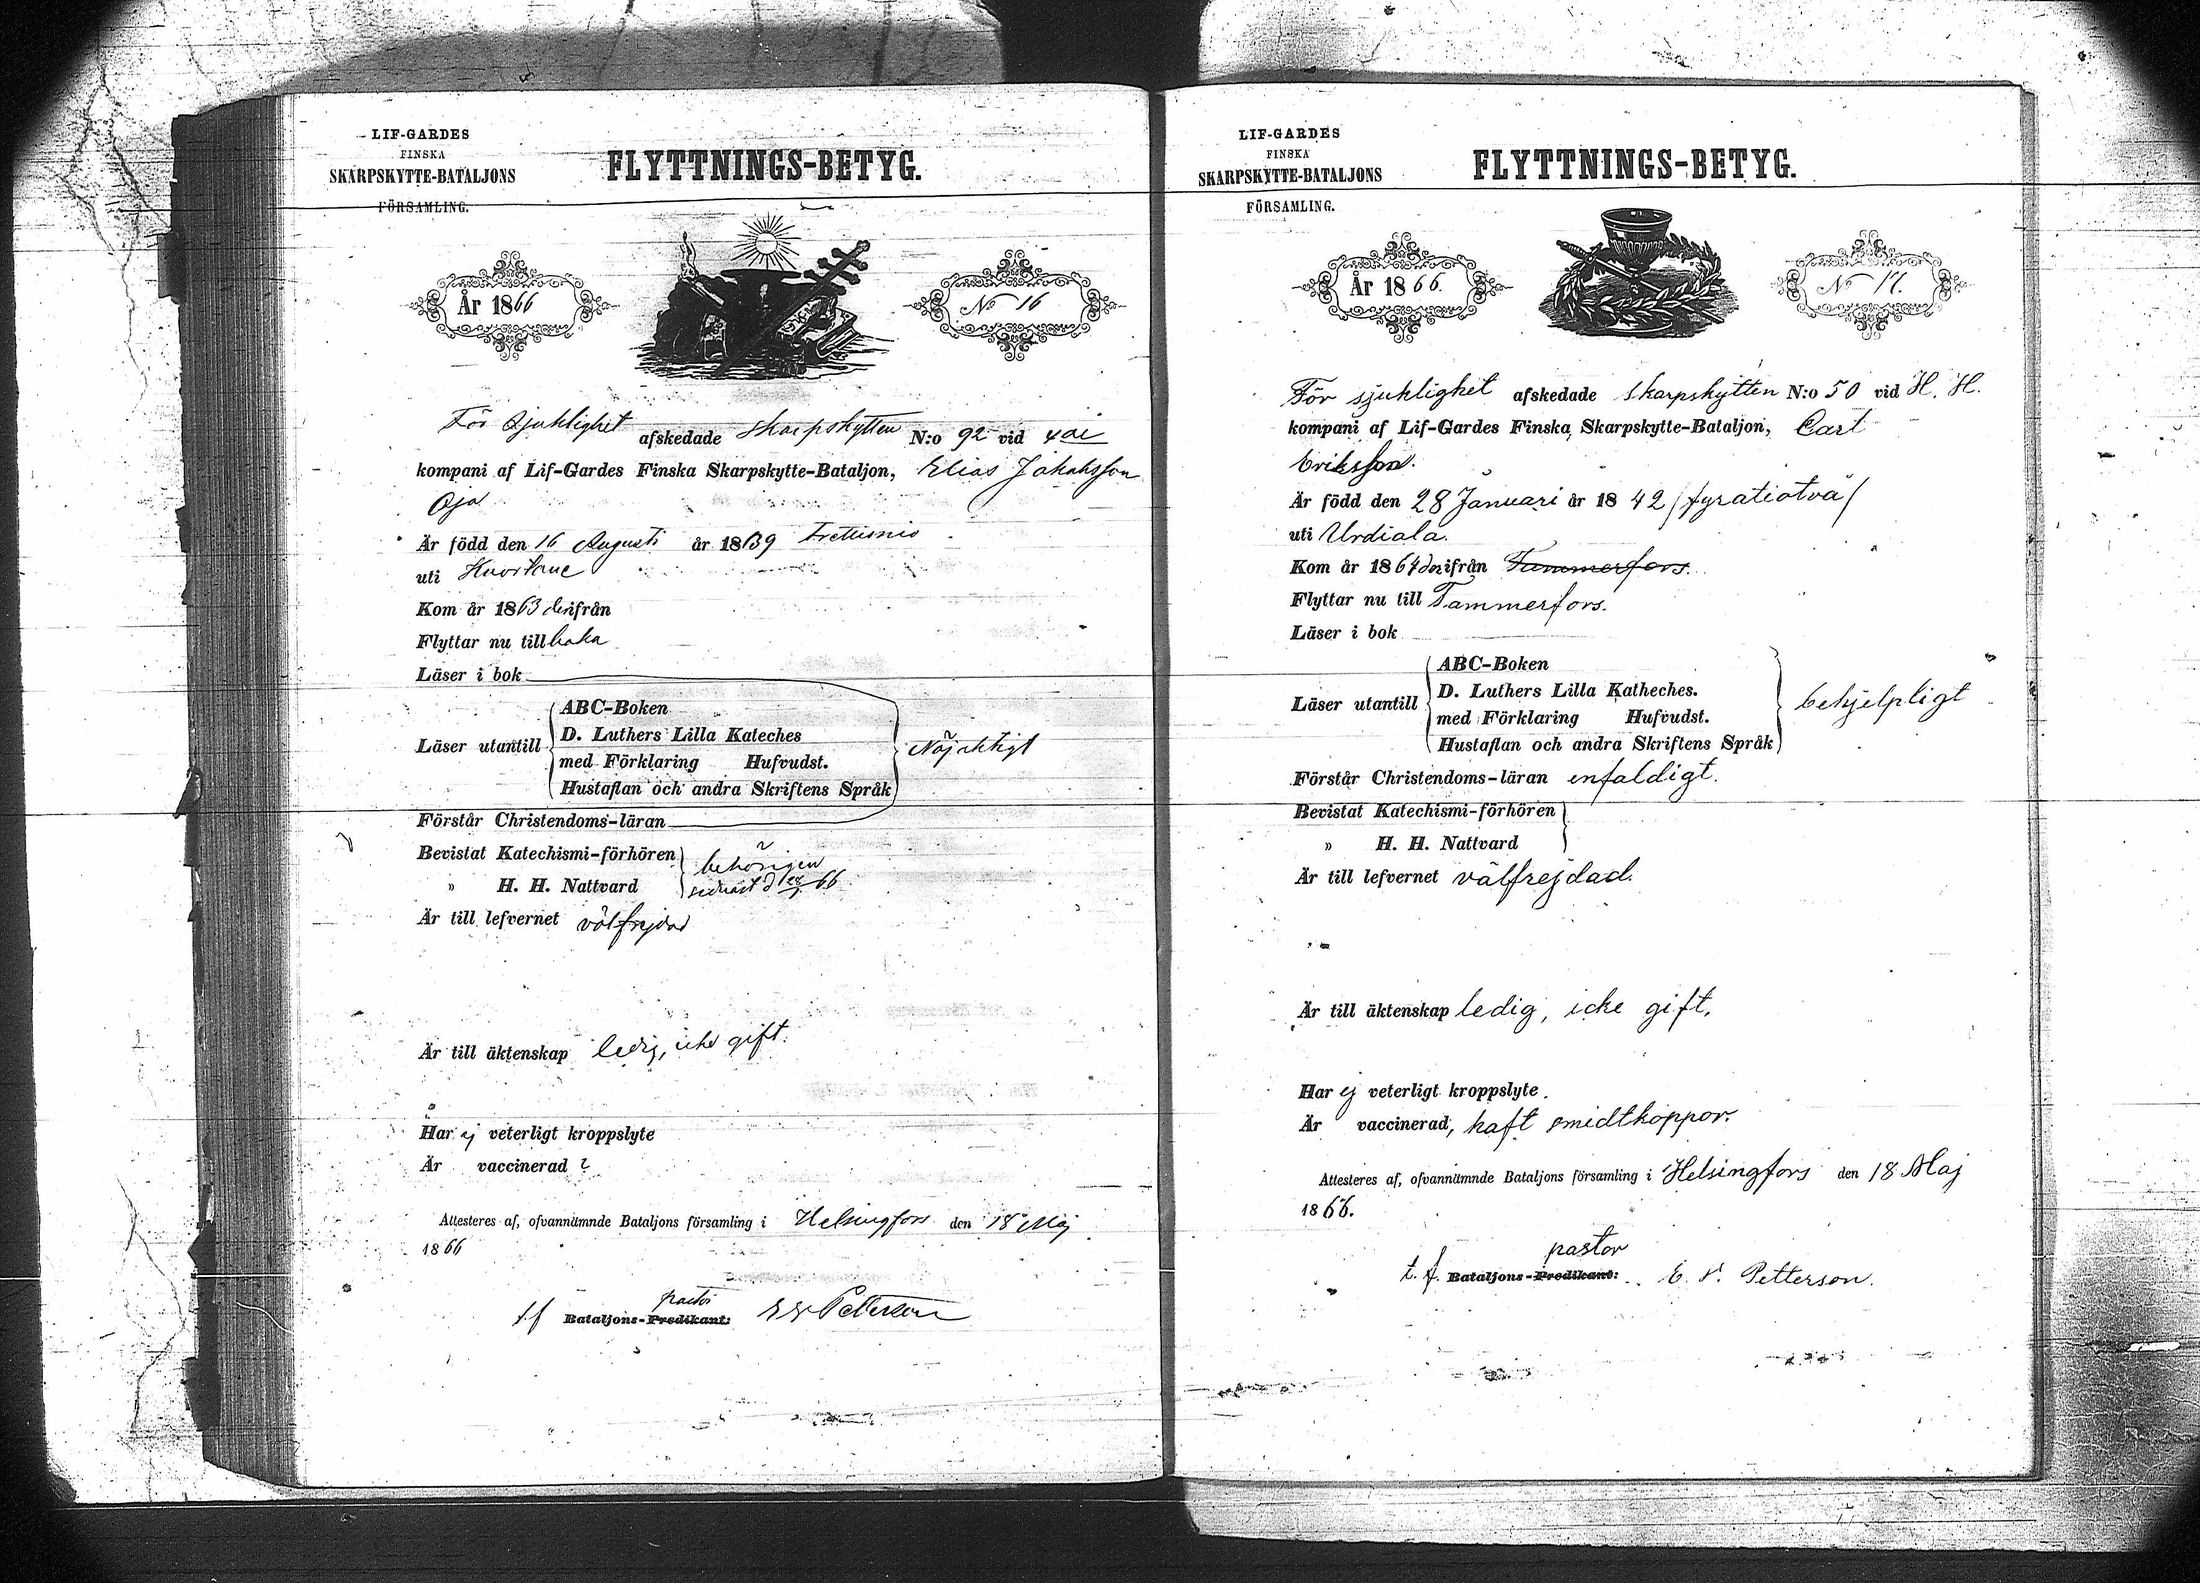 LIF-GARDES
FINSKA
SKARPSKYTTE-BATALJONS
FÖRSAMLING.
FLYTTNINGS-BETYG.
År 1866
No 16
För Sjuklighet afskedade skarpskytten N:o 92 vid 4de
kompani af Lif-Gardes Finska Skarpskytte-Bataljon, Elias Jakobsson
Oja
Är född den 16 Augusti år 1839 trettionio
uti Kuortane
Kom år 1863 derifrån
Flyttar nu tillbaka
Läser i bok
Läser utantill
ABC-Boken
D. Luthers Lilla Kateches
med Förklaring Hufvudst.
Hustaflan och andra Skriftens Språk
Nöjaktigt
Förstår Christendoms-läran
Bevistat Katechismi-förhören
" H. H. Nattvard
behörigen
sednast 66
Är till lefvernet välfrejdad
Är till äktenskap ledig, icke gift.
Har ej veterligt kroppslyte
Är vaccinerad
Attesteres af, ofvannämnde Bataljons församling i Helsingfors den 18 Maj
1866
pastor
t.f Bataljons-Predikant: Petterson
LIF-GARDES
FINSKA
SKARPSKYTTE-BATALJONS
FÖRSAMLING.
FLYTTNINGS-BETYG.
År 1866.
No 17.
För sjuklighet afskedade skarpskytten N:o 50 vid H. H.
kompani af Lif-Gardes Finska Skarpskytte-Bataljon, Carl
Eriksson.
Är född den 28 Januari år 1842 /fyratiotvå/
uti Urdiala.
Kom år 1864 derifrån Tammerfors.
Flyttar nu till Tammerfors.
Läser i bok
Läser utantill
ABC-Boken
D. Luthers Lilla Katheches.
med Förklaring Hufvudst.
Hustaflan och andra Skriftens Språk
behjelpligt
Förstår Christendoms-läran enfaldigt.
Bevistat Katechismi-förhören
" H. H. Nattvard
Är till lefvernet välfrejdad.
Är till äktenskap ledig, icke gift.
Har ej veterligt kroppslyte.
Är vaccinerad, haft smidtkoppor.
Attesteres af, ofvannämnde Bataljons församling i Helsingfors den 18 Maj
1866.
pastor
t. f. Bataljons-Predikant: E. V. Petterson.